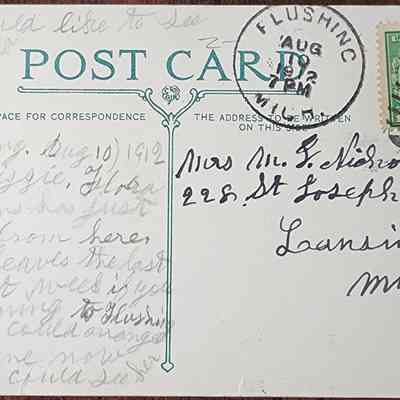 could like to see
FLUSHING
AUG
10
1912
7 PM
MICH.
POST CARD
PACE FOR CORRESPONDENCE
THE ADDRESS TO BE WRITTEN
ON THIS SIDE
Aug 10) 1912
Flora
has just
from here
leaves the last
week if you
to Flushing
could arrange
me now
could see her
Mrs M. G. Nicho
228. St Joseph
Lansin
M